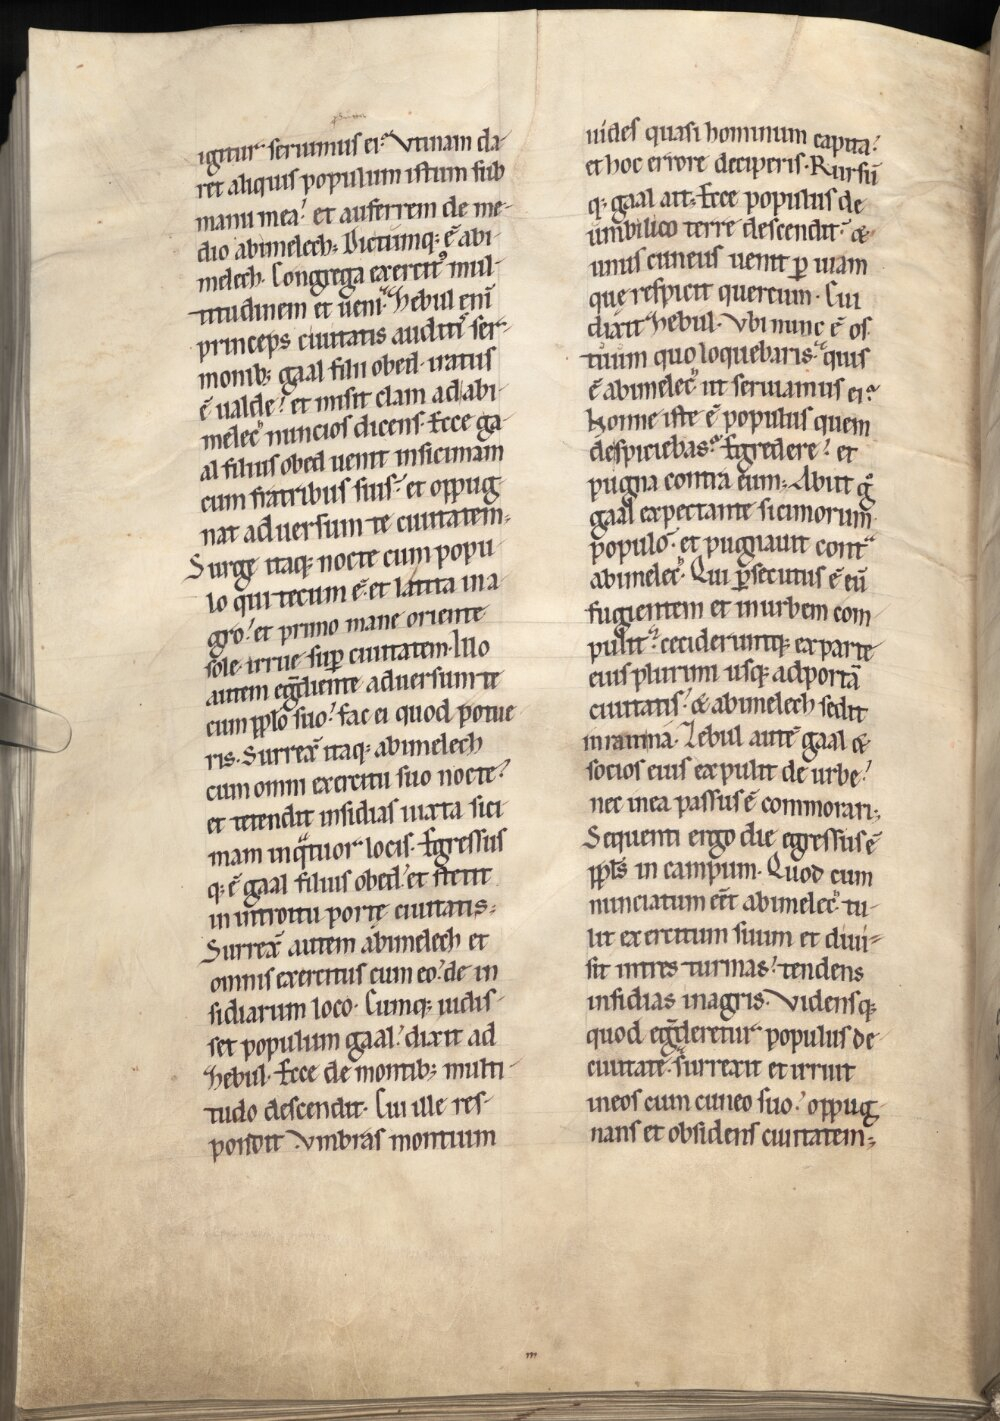 igitur seruimus ei? Vtinam da
ret aliquis populum istum sub
manu mea? et auferrem de me-
dio abimelech; Dictumq; ē abi
melech. Congrega exercit⁹ mul-
titudinem et ueni. Hebul eni̅
princeps ciuitatis auditi̅ ser-
monib; gaal filii obed. iratus
ē ualde? et misit clam ad abi-
melec̅ nuncios dicens. Ecce ga
al filius obed uenit insicimam
cum fratribus suis? et oppug
nat aduersum te ciuitatem;
Surge itaq; nocte cum popu
lo qui tecum ē. et latita in a
gro? et primo mane oriente
sole irrue sup̱ ciuitatem. Illo
autem eg̅diente aduersum te
cum pp̅lo suo? fac ei quod potue
ris. Surrex̅ itaq; abimelech
cum omni exercitu suo nocte?
et tetendit insidias iuxta sici
mam inq̅tuor locis. Egressus
q; ē gaal filius obed? et stetit
in introitu portę ciuitatis;
Surrex̅ autem abimelech et
omnis exercitus cum eo? de in
sidiarum loco. Cumq; uidis-
set populum gaal? dixit ad
Hebul. Ecce de montib; multi
tudo descendit. Cui ille res-
pondit. Vmbras montium
uides quasi hominum capita?
et hoc errore deciperis. Rursu̅
q; gaal ait; Ecce populus de
umbilico terre descendit? &
unus cuneus uenit p̱ uiam
quę respicit quercum. Cui
dixit Hebul. Vbi nunc ē os
tuum quo loquebaris? quis
ē abimelec̅ ut seruiamus ei?
Nonne iste ē populus quem
despiciebas? Egredere? et
pugna contra eum; Abiit g̅
gaal expectante sicimorum
populo. et pugnauit contᵃ
abimelec̅. Qui p̱secutus ē eu̅
fugientem et in urbem com
pulit? cecideruntq; ex parte
eius plurimi usq; ad porta̅
ciuitatis? & abimelech sedit
in ranma. Zebul aute̅ gaal &
socios eius expulit de urbe?
nec in ea passus ē commorari;
Sequenti ergo die egressus ē
pp̅ls in campum. Quod cum
nunciatum eēt abimelec̅. tu-
lit exercitum suum et diui-
sit in tres turmas? tendens
insidias in agris. Vidensq;
quod eg̅deretur populus de
ciuitate. surrexit et irruit
in eos cum cuneo suo? oppug
nans et obsidens ciuitatem;